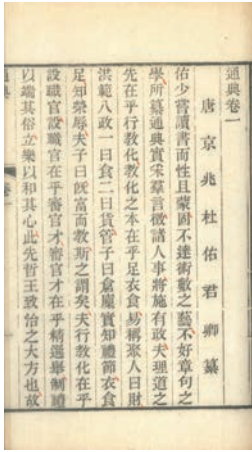 通典卷一
唐京兆杜佑君卿纂
佑少嘗讀書而性且蒙固不達術數之藝不好章句之
學所纂通典實采羣言徵諸人事將施有政夫理道之
先在乎行教化教化之本在乎足衣食易稱聚人曰財
洪範八政一曰食二曰貨管子曰倉廩實知禮節衣食
足知榮辱夫子曰旣富而教斯之謂矣夫行教化在乎
設職官設職官在乎審官才審官才在乎精選舉制禮
以端其俗立樂以和其心此先哲王致治之大方也故